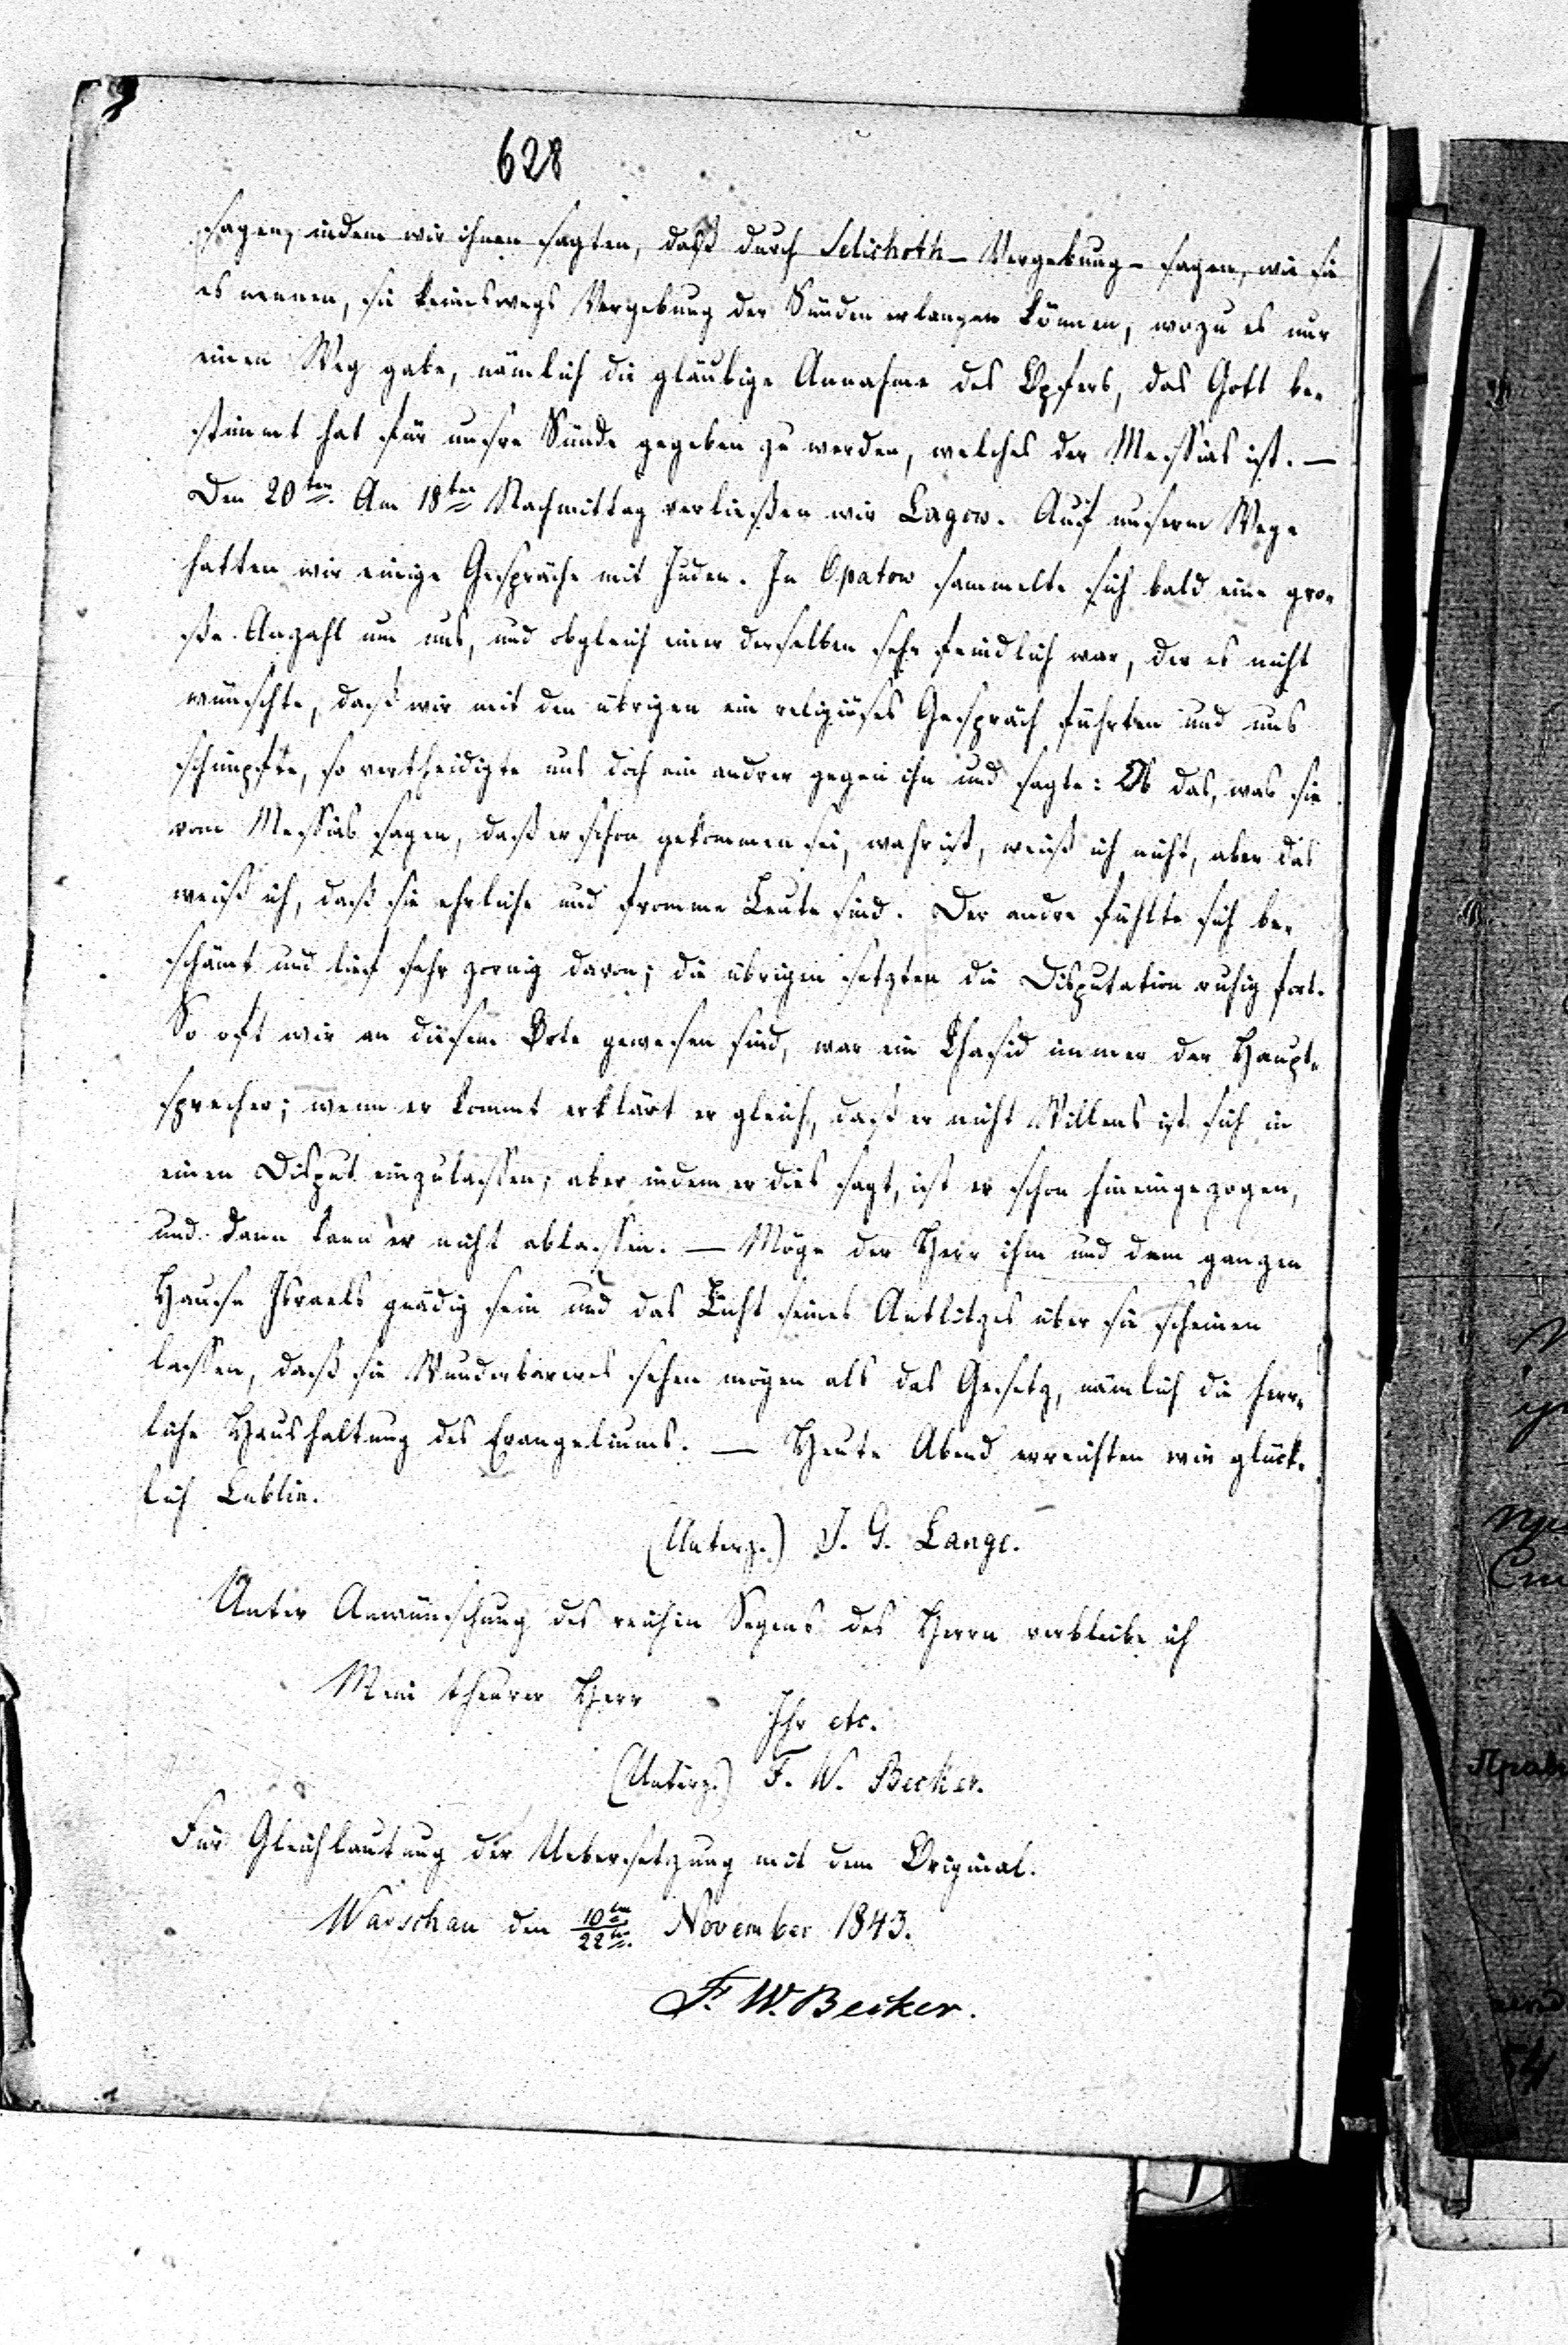 628
sagen, indem wir ihnen sagten, daß durch Selichoth- Vergebung- sagen, wie sie
es nennen, sie keineswegs Vergebung der Sünden erlangen können, wozu es nur
einen Weg gäbe, nämlich die gläubige Annahme des Opfers, das Gott be-
stimmt hat für unsre Sünde gegeben zu werden, welches der Messias ist. —
Den 20ten. Am 18ten Nachmittag verließen wir Lagow. Auf unserm Wege
hatten wir einige Gespräche mit Juden. In Opatow sammelte sich bald eine gro-
ße Anzahl um uns, und obgleich einer derselben sehr feindlich war, der es nicht
wünschte, daß wir mit den übrigen ein religiöses Gespräch führten und uns
schimpfte, so vertheidigte uns doch ein andrer gegen ihn und sagte: Ob das, was sie
vom Messias sagen, daß er schon gekommen sei, wahr ist, weiß ich nicht, aber das
weiß ich, daß sie ehrliche und fromme Leute sind. Der andre fühlte sich be-
schämt und lief sehr zornig davon; die übrigen setzten die Disputation ruhig fort.
So oft wir an diesem Orte gewesen sind, war ein Chasid immer der Haupt-
sprecher; wenn er kommt erklärt er gleich, daß er nicht Willens ist sich in
einen Disput einzulassen; aber indem er dies sagt, ist er schon hineingezogen,
und dann kann er nicht ablassen. — Möge der Herr ihm und dem ganzen
Hause Israels gnädig sein und das Licht seines Antlitzes über sie scheinen
lassen, daß sie Wunderbareres sehen mögen als das Gesetz, nämlich die herr-
liche Haushaltung des Evangeliums. — Heute Abend erreichten wir glück-
lich Lublin.
(Unterz.) J. G. Lange.
Unter Anwünschung des reichen Segens des Herrn verbleibe ich
Mein theurer Herr
Ihr etc.
(Unterz.) F. W. Becker.
Für Gleichlautung der Uebersetzung mit dem Original.
Warschau den 10ten/22ten November 1843.
F. W. Becker.